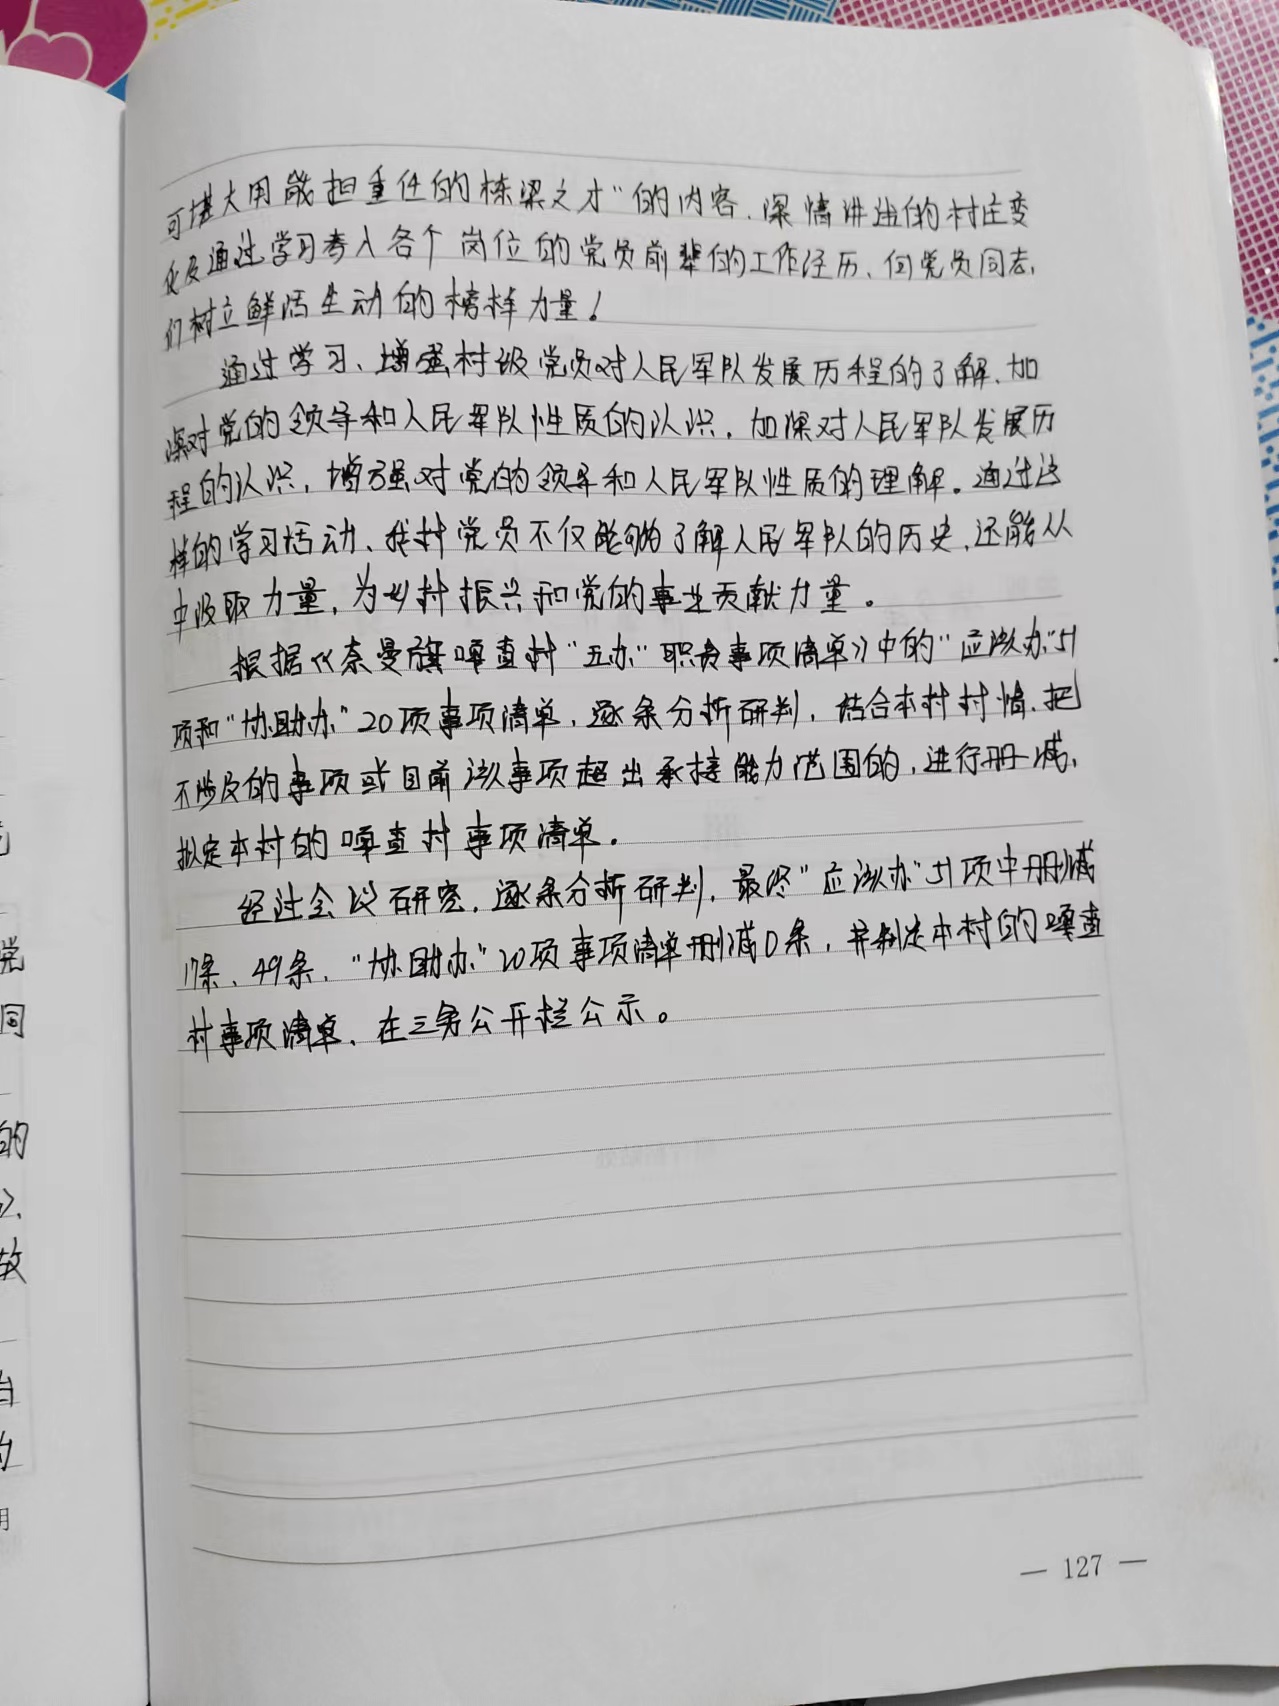 可堪大用能担重任的栋梁之才"的内容、深情讲述的村庄变
化及通过学习考入各个岗位的党员前辈们的工作经历、向党员同志
们树立鲜活生动的榜样力量！
通过学习、增强村级党员对人民军队发展历程的了解、加
深对党的领导和人民军队性质的认识，加深对人民军队发展历
程的认识，增强对党的领导和人民军队性质的理解。通过这
样的学习活动、我村党员不仅能够了解人民军队的历史，还能从
中汲取力量，为乡村振兴和党的事业贡献力量。
根据《奈曼旗嘎查村"五办"职责事项清单》中的"应该办"51
项和"协助办"20项事项清单，逐条分析研判，结合本村村情、把
不涉及的事项或目前该事项超出承接能力范围的，进行删减，
拟定本村的嘎查村事项清单。
经过会议研究，逐条分析研判，最终"应该办"51项中删减
17条、49条，"协助办"20项事项清单删减0条，并制定本村的嘎查
村事项清单，在三务公开栏公示。
— 127 —
党
同
的
故
自
的